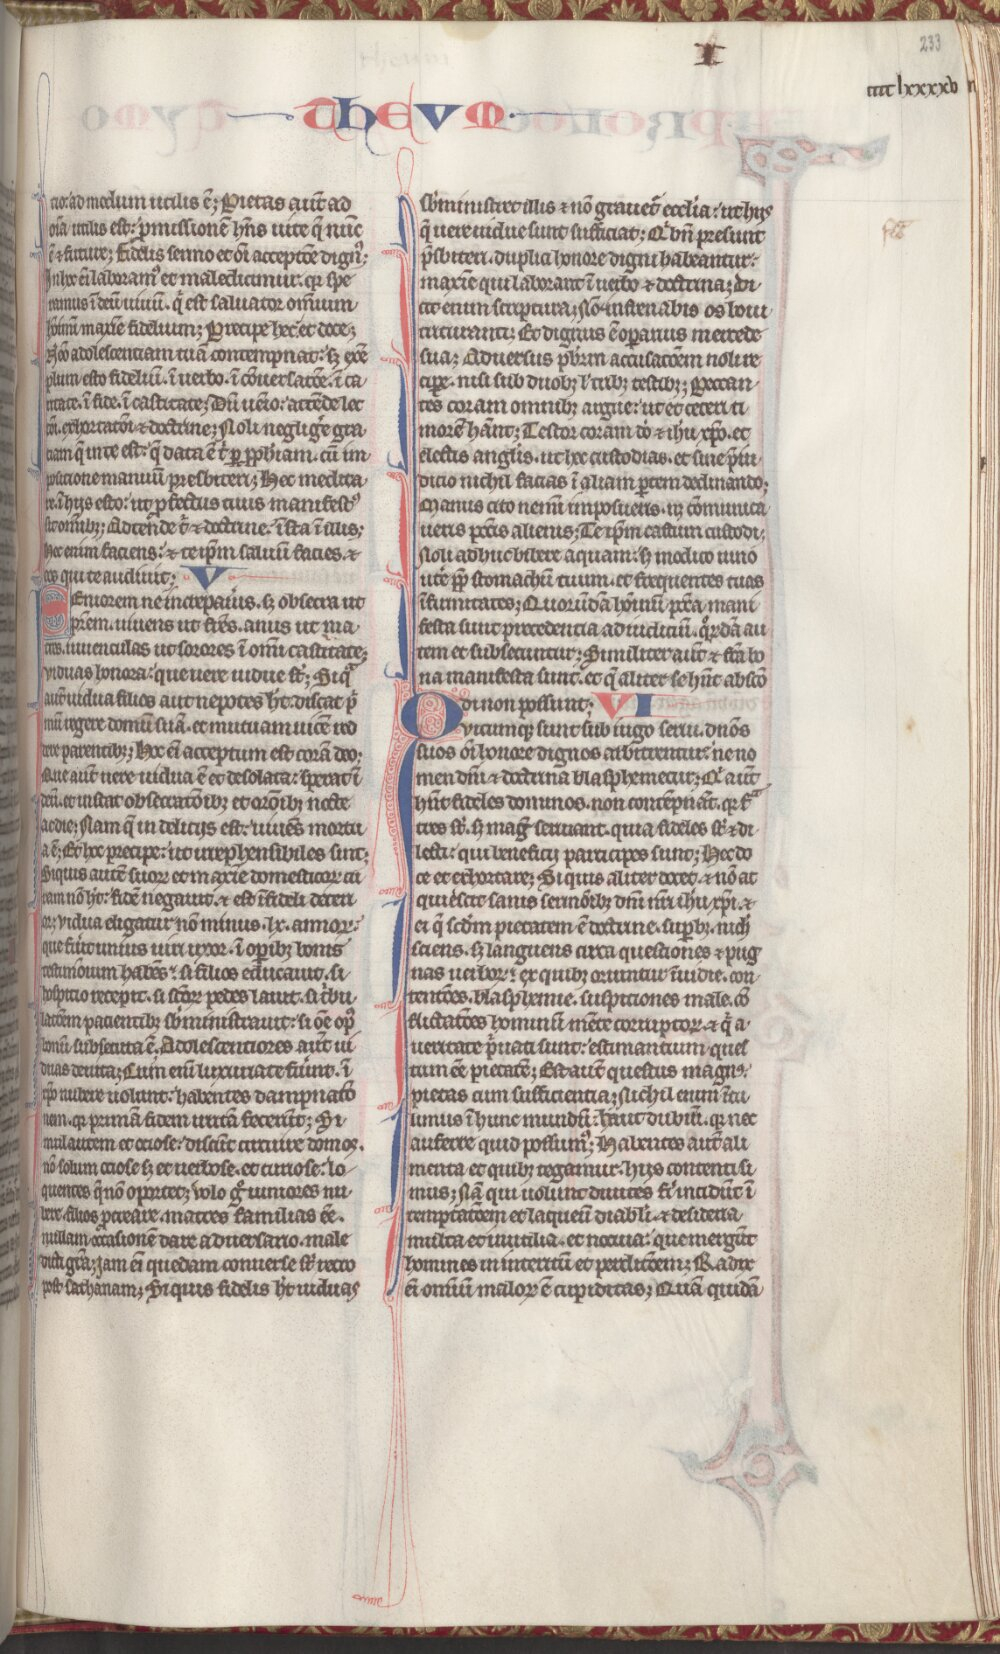 I
233
iiii lxxxxv
theum
tior. ad modicum utilis ē; Pietas aūt ad
oīa utilis est. p̄missionē hn̄s uite q̄ nūc
ē & future; Fidelis sermo et oī acceptōe dign9;
In hoc eī laboram9 et maledicimur. qr spe
ramus ī deū uiuū. q̄ est saluator omnium
hoīmū maxīe fidelium; Precipe hec et doce;
Nēo adolescentiam tuā contempnat. sꝫ exē
plum esto fideliū. ī uerbo. ī cōuersatōe. ī ca
ritate. ī fide. ī castitate; Dū uēio. attēde lec
tōi. exhortatōi & doctrine; Noli negliḡe gra
tiam q̄ in te est. q̄ data ē t̄ p̱ pph̄iam. cū im
positione manuū presbiteri; Hec medita
re. ī hiis esto. ut p̱fectus tuus manifest9
sit oīnibꝫ; Adtende t̄ & doctrine. īsta ī illis;
Hoc enim faciens. & te ip̄m saluū facies. &
eos qui te audiūt; V
Seniorem ne īncrepau̓is. sꝫ obsecra ut
pr̄em. iuuenes ut fr̄es. anus ut ma
tres. iuuenculas ut sorores ī omī castitate;
Viduas honora. que uere uidue st̄; Si q̄
aūt uidua filios aut nepotes ht̄. discat p̄
mū regere domū suā. et mutuam uicē red
dere parentibꝫ; Hoc eī acceptum est corā deo;
Que aūt uere uidua ē et desolata. sperat ī
deū. et instat obsecratōibꝫ et orōibꝫ nocte
ac die; Nam q̄ in deliciis est. uiuēs mortu
a ē; Et hoc precipe. ut irrephensibiles sint;
Si quis autē suorꝝ et maxīe domesticorꝝ cu
ram nō ht̄. fidē negauit. & est īfideli deteri
or; Vidua eligatur nō minus. lx. annorꝝ.
que fu̓it unius uiri uxor. ī opibꝫ bonis
testimonium habēs. si filios educauit. si
hospitio recepit. si sc̄orꝝ pedes lauit. si t̄bu
latōem patientibꝫ sb̄ministrauit. si oē op9
bonū subsecuta ē. Adolescentiores aūt ui
duas deuita; Cum enī luxuriate fu̓int. ī
xp̄o nubere uolunt. habentes dampnatō
nem. qr primā fidem irritā fecerūt; Si
mul autem et ociose. discūt circuire domos.
nō solum ociose sꝫ et uerbose. et curiose. lo
quentes q̄ nō oportet; Volo g̊ iuniores nu
bere. filios pcreare. matres familias ēe.
nullam occasionē dare aduersario. male
dicti grā; Jam eī quedam conuerse st̄ retro
post sathanam; Si quis fidelis ht̄ uiduas
sb̄ministret illis & nō grauet̄ ecclīa. ut hiis
q̄ uere uidue sunt sufficiat; Q̄ bn̄ presunt
p̄sbiteri. duplici honore digni habeantur.
maxīe qui laborant ī uerbo & doctrina; Di
cit enim scriptura; Nō infrenabis os boui
trituranti; Et dignus ē opariꝰ mercede
sua; Aduersus pb̄rm accusatōem noli re
cipe. nisi sub duobꝫ l' tribꝫ testibꝫ; Peccan
tes coram omnibꝫ argue. ut et ceteri ti
morē hānt; Testor coram dō & ih̄u xp̄o. et
electis angl̄is. ut hec custodias. et sine p̄iu
dicio nichil facias ī aliam partem declinando;
Manus cito nemī imposueris. nꝫ cōmunica
ueris pctīs alienis; Te ip̄m castum custodi;
Noli adhuc bibere aquam. sꝫ modico uino
ut̄e pp̄ stomachū tuum. et frequentes tuas
īfirmitates; Quorūdā hoīmū pctā mani
festa sunt precedentia ad iudiciū. q̊rdā au
tem et subsecuntur; Similiter aūt & fctā bo
na manifesta sunt. et q̄ aliter se hn̄t abscō
di non possunt; VI
Quicumqꝫ sunt sub iugo serui. dn̄os
suos oī honore dignos arbitrentur. ne no
men dn̄i & doctrina blasphemetur; Q̄ aūt
hn̄t fideles dominos. non contēpnāt. qr fr̄a
tres st̄. sꝫ mag̊ seruiant. quia fideles st̄ & di
lecti. qui beneficij participes sunt; Hec do
ce et exhortare; Si quis aliter docet. & nō ac
quiescit sanis sermōibꝫ dn̄i nr̄i ih̄u xp̄i. &
ei q̄ scd̄m pietatem ē doctrine. supbꝫ. nich̄
sciens. sꝫ languens circa questiones & pug
nas uerborꝝ. ex quibꝫ oriuntur īuidie. con
tentōes. blasphemie. suspitiones male. cō
flictatōes hominū mēte corruptorꝝ. & q̄ a
ueritate p̄uati sunt. estimantium ques
tum ēe pietatē; Est aūt questus magnꝰ.
pietas cum sufficientia; Nichil enim ītu
limus ī hunc mundū. haut dubiū. qr nec
auferre quid possum9; Habentes aūt ali
menta et quibꝫ tegamur. hiis contenti si
mus; Nā qui uolunt diuites fi̓ incidūt ī
temptatōem et laqueū diaboli. & desideria
multa et inutilia. et nociua. que mergūt
homines in interitū et perditōem; Radix
eī omniū malorꝝ ē cupiditas; Quā quidā